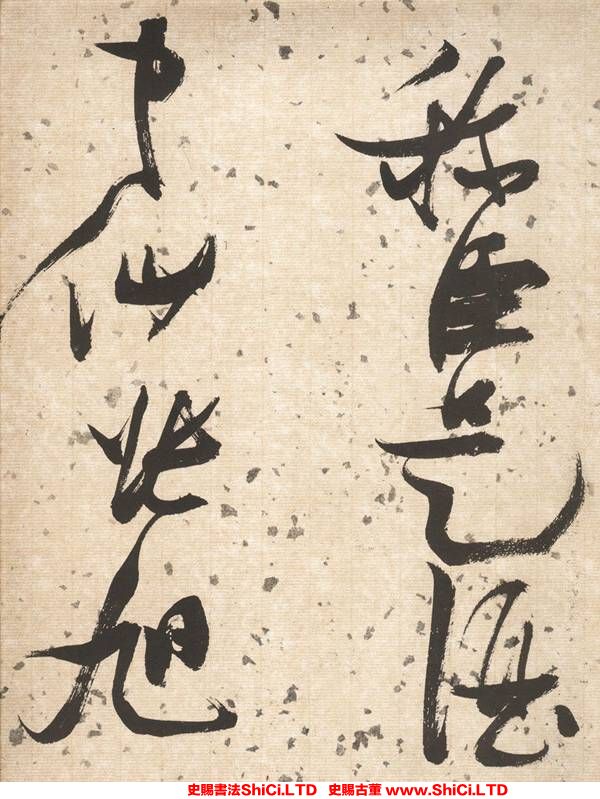 称臣是酒
中仙張旭
史賜書法ShiCi.LTD 史賜古董 www.ShiCi.LTD